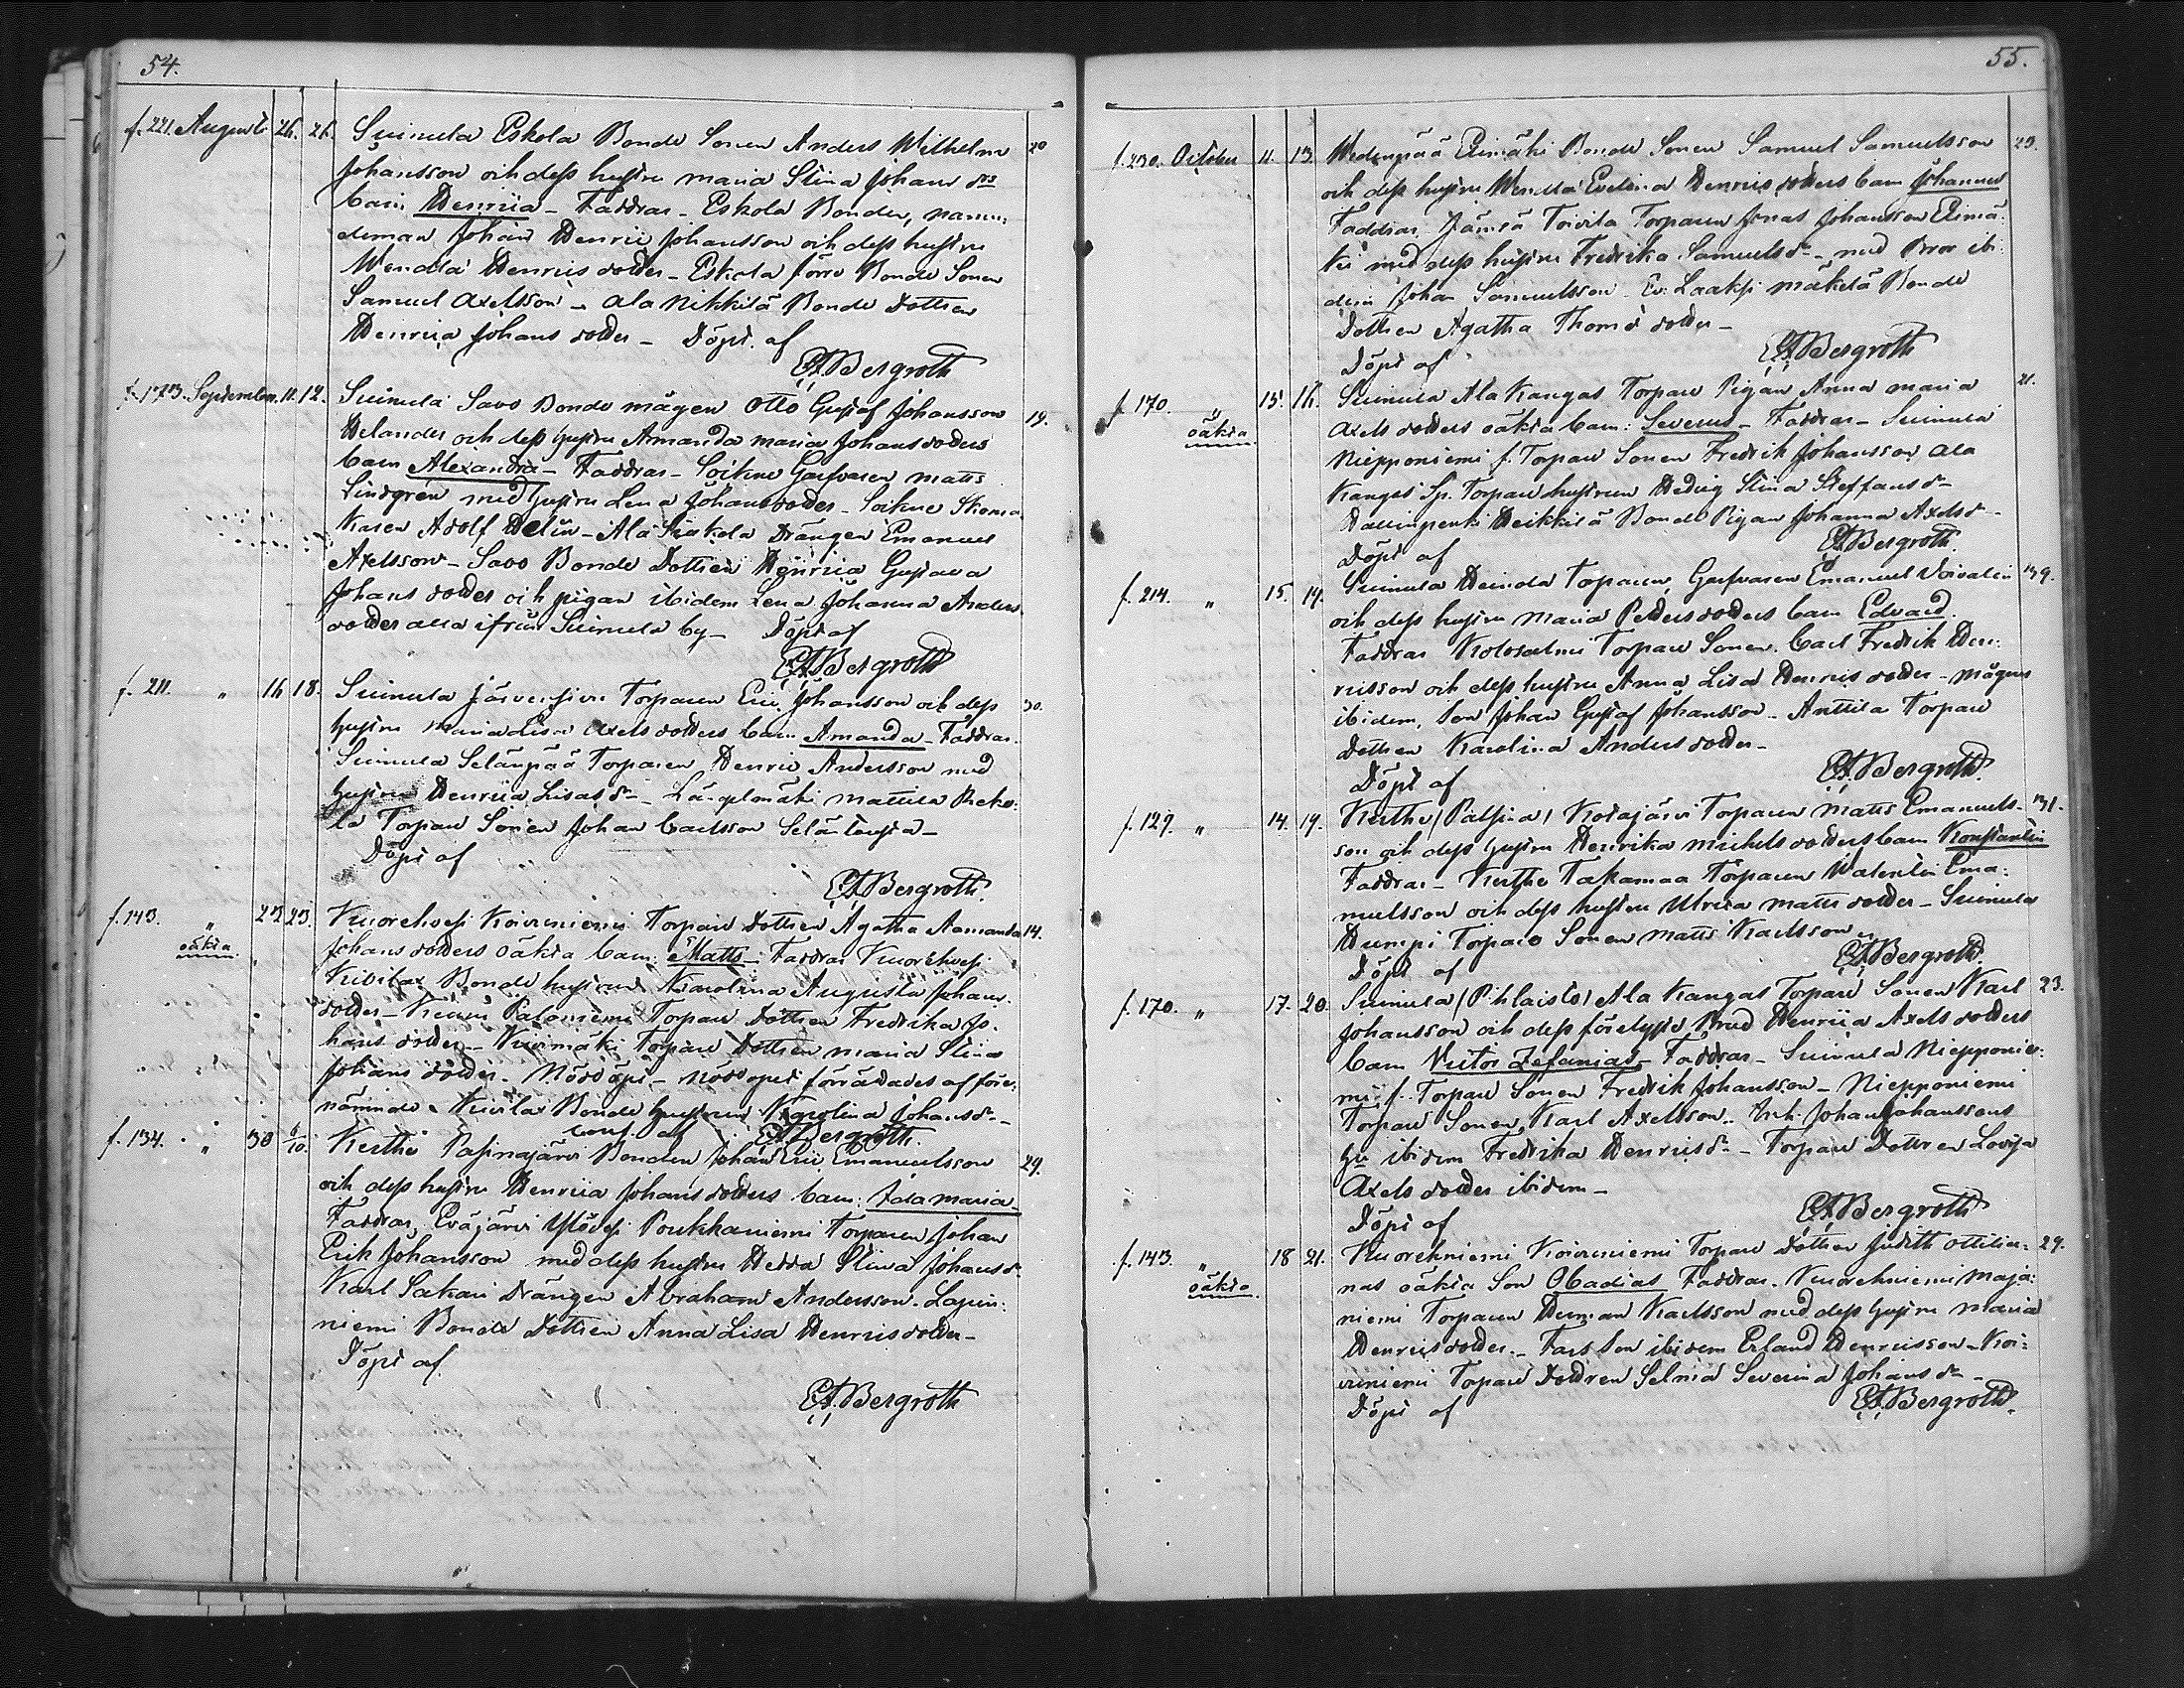 54.
f. 221. Augusti 26. 26. Suinula Eskola Bonde Sonen Anders Wilhelm 20
Johansson och dess hustru Maria Stina Johans drs
barn Henriia – Faddrar – Eskola Bonden, namn:
deman Johan Henric Johansson och dess hustru
Wendla Henrics dotter – Eskola förre Bonde Sonen
Samuel Axelsson – Ala Nikkilä Bonde Dottren
Henriia Johans dotter – Döpt af
E. A. Bergroth
f. 173. September. 11. 12. Suinula Savo Bonde mågen Otto Gustaf Johansson 19.
Helander och dess hustru Amanda Maria Johansdotters
barn Alexandra – Faddrar – Soikne Garfvaren Matts
Lindgrén med hustru Lena Johansdotter – Soikne Skoma
karen Adolf Helin – Ala Drängen Emanuel
Axelsson – Savo Bonde Dottren Henriia Gustava
Johans dotter och pigan ibidem Lena Johanna Anders
dotter alla ifrån Suinula by – Döpt af
E. A. Bergroth
f. 211. " 16 18. Suinula Järvensivu Torparen Eric Johansson och dess 30.
hustru Maria Lisa Axels dotters barn Amanda – Faddrar.
Suinula Selänpää Torparen Henric Andersson med
hustru Henriia Lisas dr – Längelmäki Mattila
la Torpare Sonen Johan Carlsson
Döpt af
E. A. Bergroth.
f. 143. " 22 23. Kuorehvesi Koivuniemi Torpare Dottren Agatha Aamanda 14.
oäkta
Johans dotters oäkta barn: Matts – Faddrar Kuorehvesi
Kivilax Bonde hustrun Karolina Augusta Johans
dotter – Paloniemi Torpare Dottren Fredrika Jo:
hans dotter – Torpare Dottren Maria Stina
Johans dotter. Nöddöpt – Nöddopet förrättades af före:
nämnde Bonde hustrun Karolina Johansdr –
conf. af E. A. Bergroth.
f. 134. " 30 6/10. Kerthe Pasinajärvi Bonden Johan Eric Emanuelsson 29.
och dess hustru Henriia Johans dotters barn: Ida Maria –
Faddrar, Eväjärvi Poukkaniemi Torparen Johan
Erik Johansson med dess hustru Hedda Stina Johansdr
Karl Sakari Drängen Abraham Andersson. Lapin:
niemi Bonde Dottren Anna Lisa Henricsdotter –
Döpt af
E. A. Bergroth
55.
f. 230. October 11. 13. Wedenpää Elimäki Bonde Sonen Samuel Samuelsson 23.
och dess hustru Wendla Evelina Henrics dotters barn Johannes
Faddrar. Jämsä Toivila Torparen Jonas Johansson Elimä:
ki med dess hustru Fredrika Samuelsdr – med Bror ibi
dem Johan Samuelsson. Ev. Laaksi mäkelä Bonde
Dottren Agatha Thomæ dotter –
Döpt af E. A. Bergroth
f. 170. " 15. 16. Suinula Ala Kangas Torpare Pigan Anna Maria 21.
oäkta
Axels dotters oäkta barn: Severus – Faddrar – Suinula
Niepponiemi f. Torpare Sonen Fredrik Johansson Ala
Kangas Sp. Torpare hustrun Hedvig Stina Steffansdr
Heikkilä Bonde Pigan Johanna Axelsdr –
Döpt af E. A. Bergroth.
f. 214. " 15. 19. Suinula Heinola Torparen, Garfvaren Emanuel 39.
och dess hustru Maria Petters dotters barn Edvard.
Faddrar Kolosalmi Torpare Sonen Carl Fredrik Hen:
ricsson och dess hustru Anna Lisa Henrics dotter – mågens
ibidem, Son Johan Gustaf Johansson – Anttila Torpare
Dottren Karolina Anders dotter –
Döpt af E. A. Bergroth.
f. 129. " 14. 19. Kerthe (Palsina) Kotajärvi Torparen Matts Emanuels- 31.
son och dess hustru Henrika Michels dotters barn Konstantin
Faddrar – Kerthe Takamaa Torparen Walentin Ema:
nuelsson och dess hustru Ulrica Matts dotter – Suinula
Humpi Torpare Sonen Matts Karlsson
Döpt af E. A. Bergroth.
f. 170. " 17. 20. Suinula (Pihlaisto) Ala Kangas Torpare Sonen Karl 23.
Johansson och dess förelysta Brud Henriia Axels dotters
barn Victor Zefanias – Faddrar – Suinula Niepponie:
mi f. Torpare Sonen Fredrik Johansson – Niepponiemi
Torpare Sonen, Karl Axelsson. Ink. Johan Johanssons
hu ibidem Fredrika Henricsdr – Torpare Dottren Lovisa
Axels dotter ibidem –
Döpt af E. A. Bergroth
f. 143. " 18 21. Kuorehniemi Koivuniemi Torpare Dottren Judith Ottilia: 29.
oäkta.
nas oäkta Son Obadias Faddrar. Kuorehniemi Maja:
niemi Torparen Herman Karlsson med dess hustru Maria
Henricsdotter – Fars Son ibidem Erland Henricsson – Koi:
vuniemi Torpare Dottren Selma Severina Johansdr –
Döpt af E. A. Bergroth.